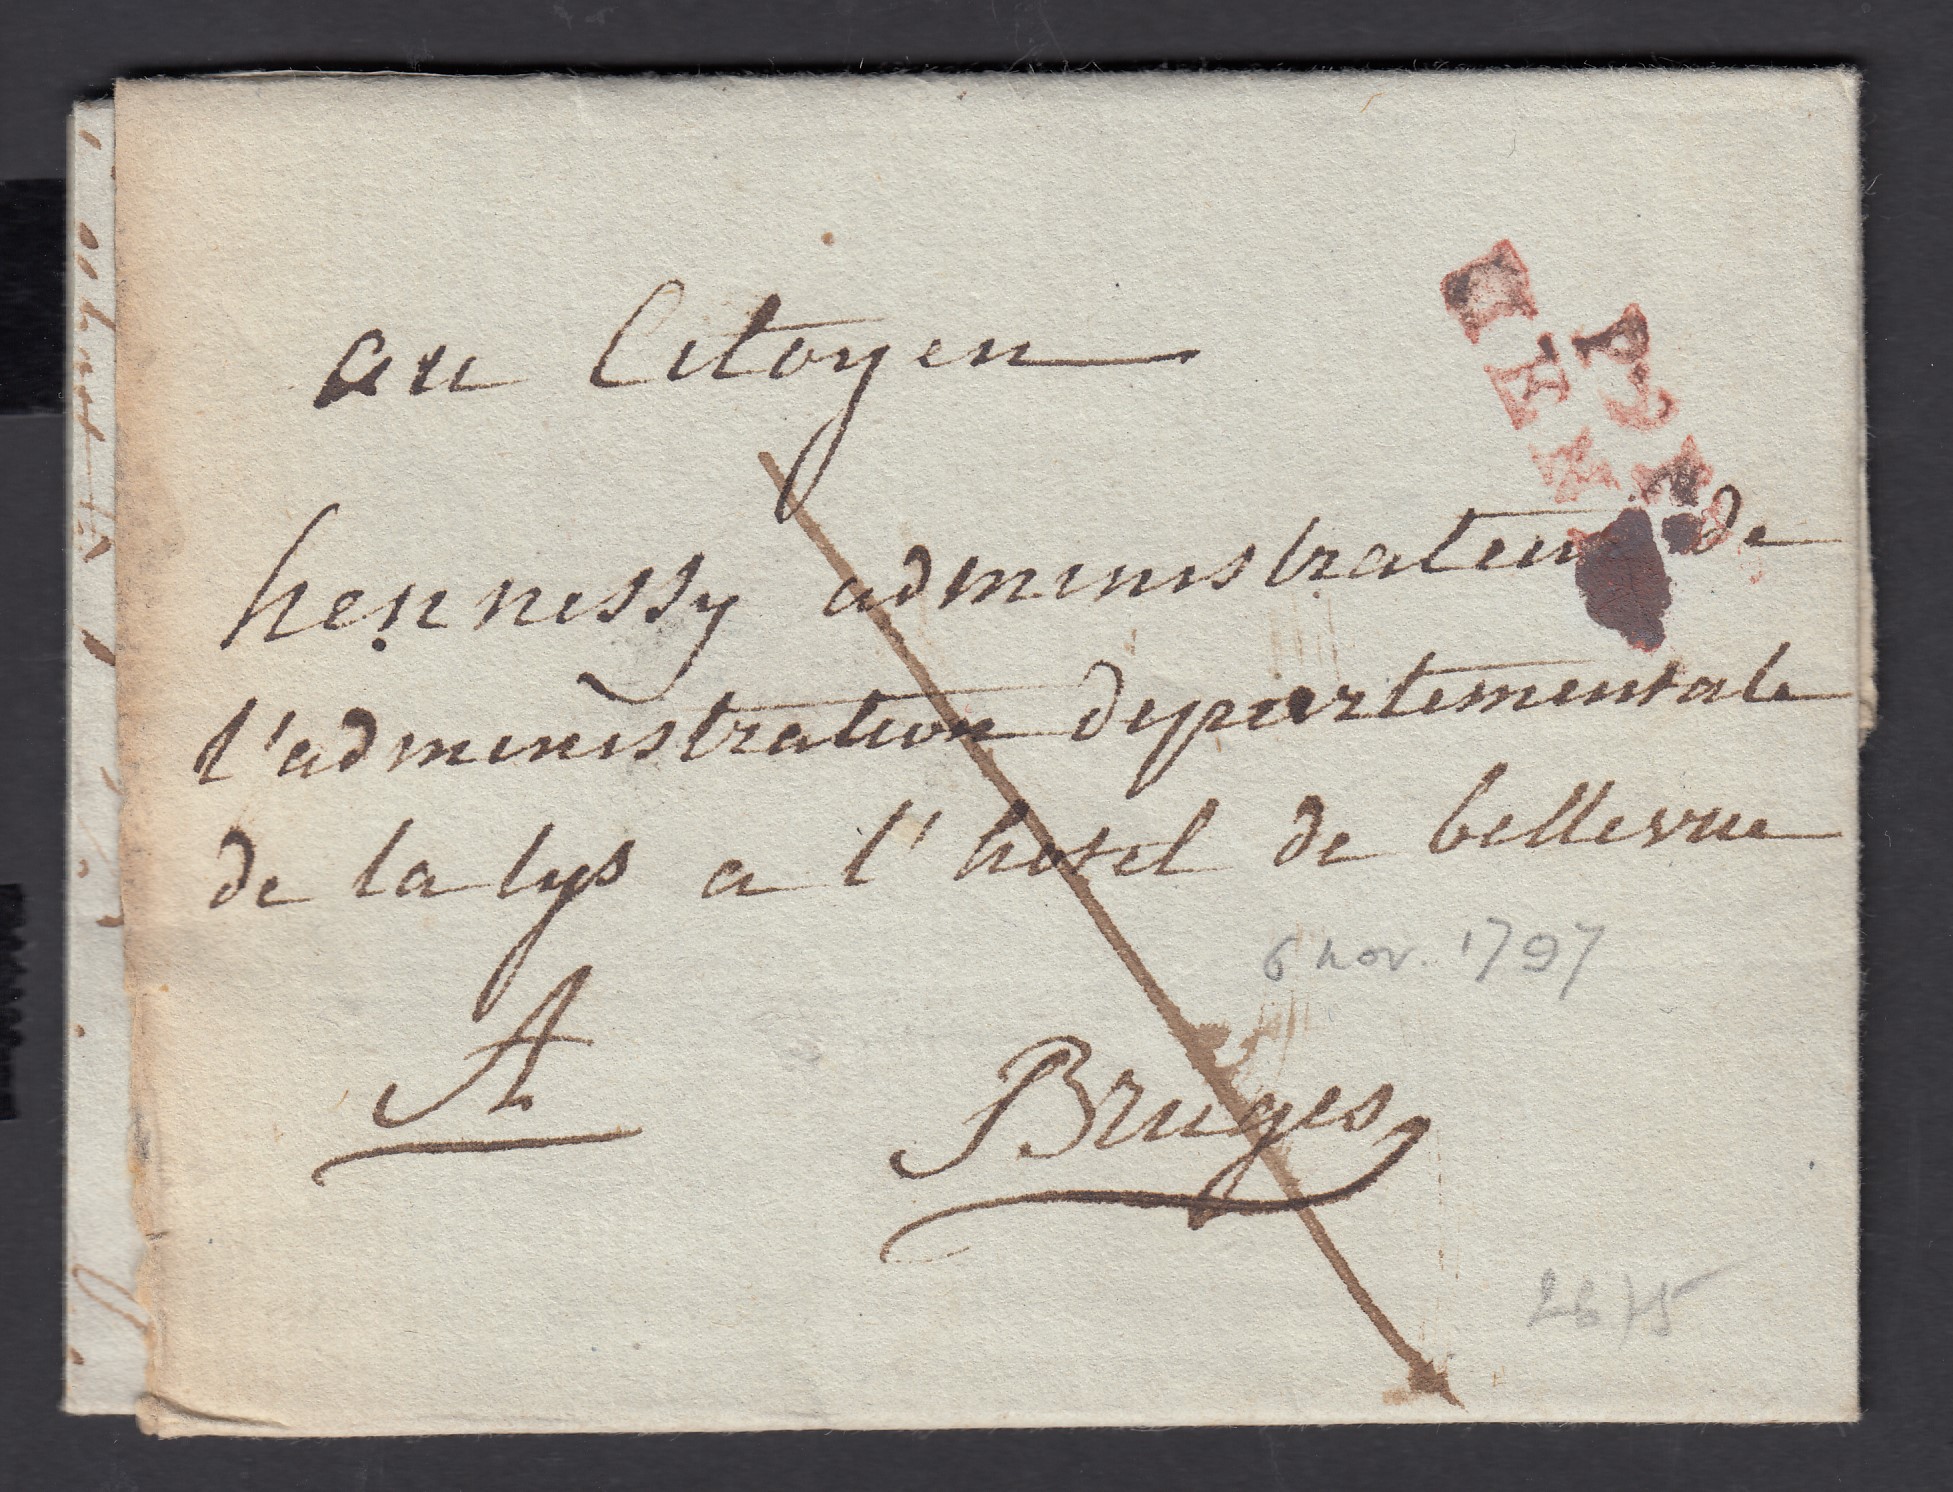 au Citoyen
hennessy administrateur de
l'administration departementale
de la lys a l'hotel de bellevue
6 nov. 1797
A Bruges